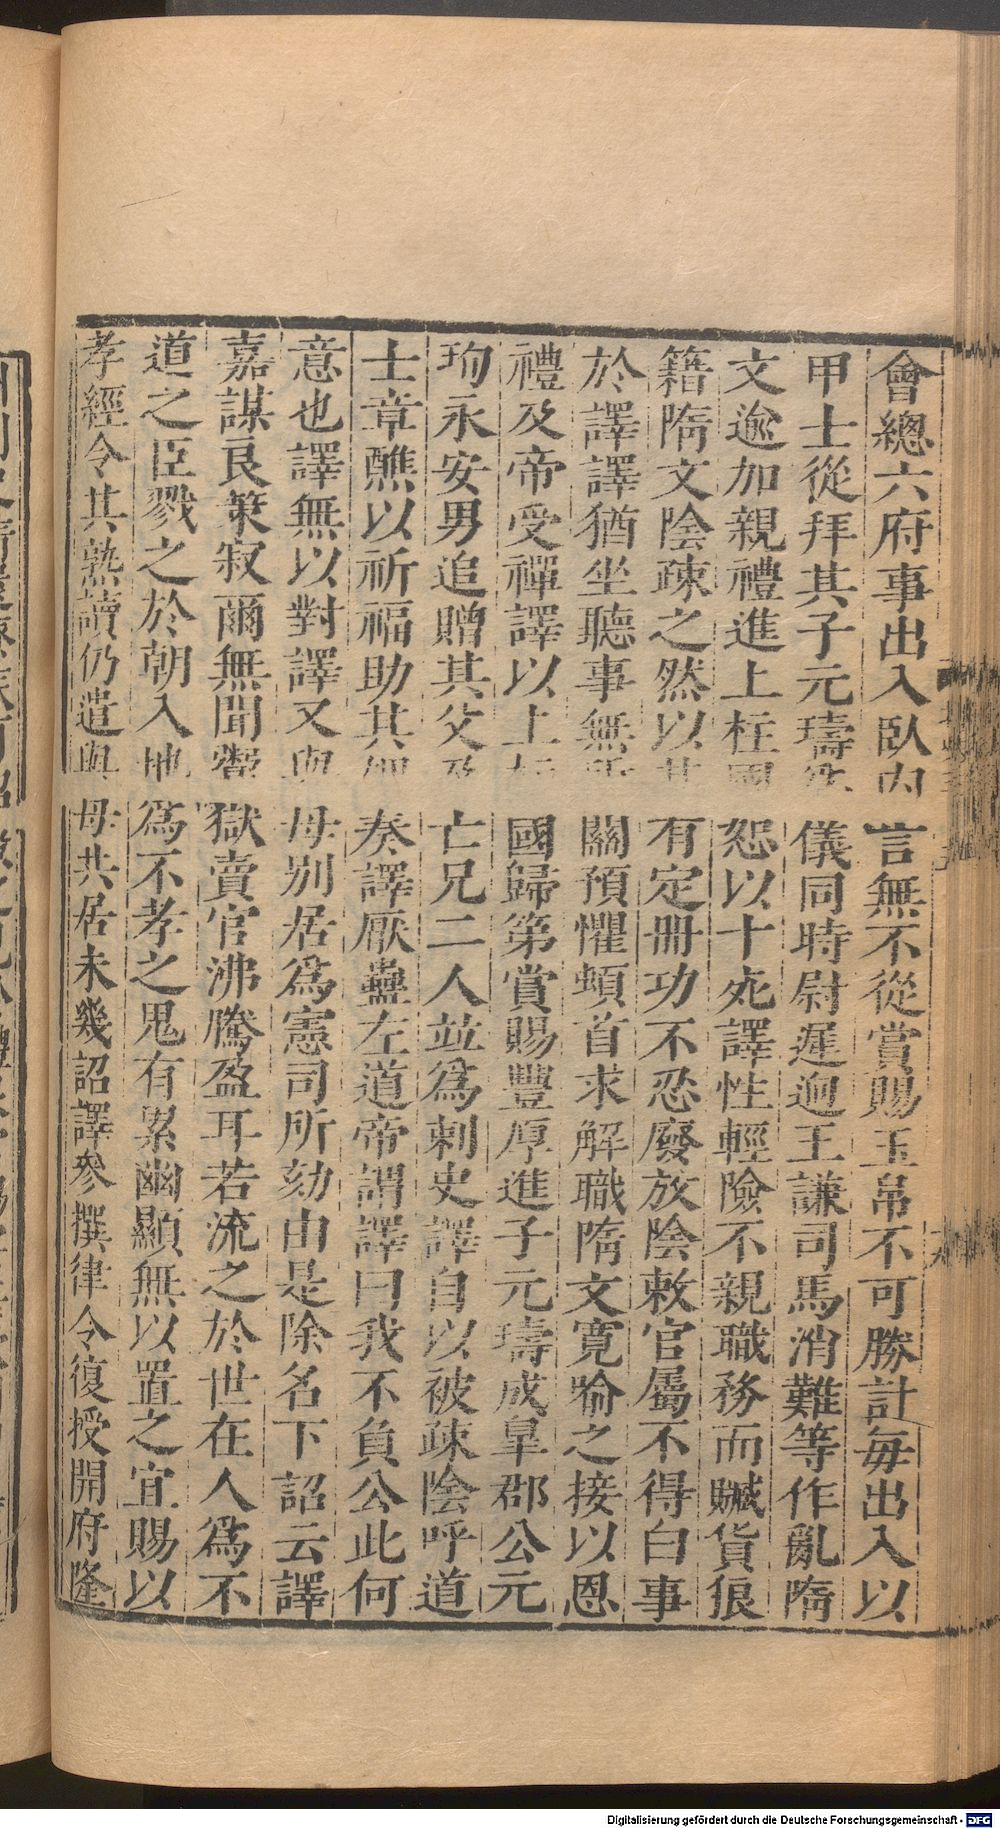 會總六府事出入臥內言無不從賞賜玉帛不可勝計每出入以
甲士從拜其子元璹為儀同時尉遲迥王謙司馬消難等作亂隋
文逾加親禮進上柱國恕以十死譯性輕險不親職務而贓貨狼
籍隋文陰疎之然以其有定冊功不忍廢放陰敕官屬不得白事
於譯譯猶坐聽事無所關預懼頓首求解職隋文寬喻之接以恩
禮及帝受禪譯以上柱國歸第賞賜豐厚進子元璹成臯郡公元
珣永安男追贈其父及亡兄二人並爲刺史譯自以被疎陰呼道
士章醮以祈福助其婢奏譯厭蠱左道帝謂譯曰我不負公此何
意也譯無以對譯又與母別居爲憲司所劾由是除名下詔云譯
嘉謀良策寂爾無聞鬻獄賣官沸騰盈耳若流之於世在人爲不
道之臣戮之於朝入地爲不孝之鬼有累幽顯無以置之宜賜以
孝經令其熟讀仍遣與母共居未幾詔譯參撰律令復授開府隆
Digitalisierung gefördert durch die Deutsche Forschungsgemeinschaft - DFG